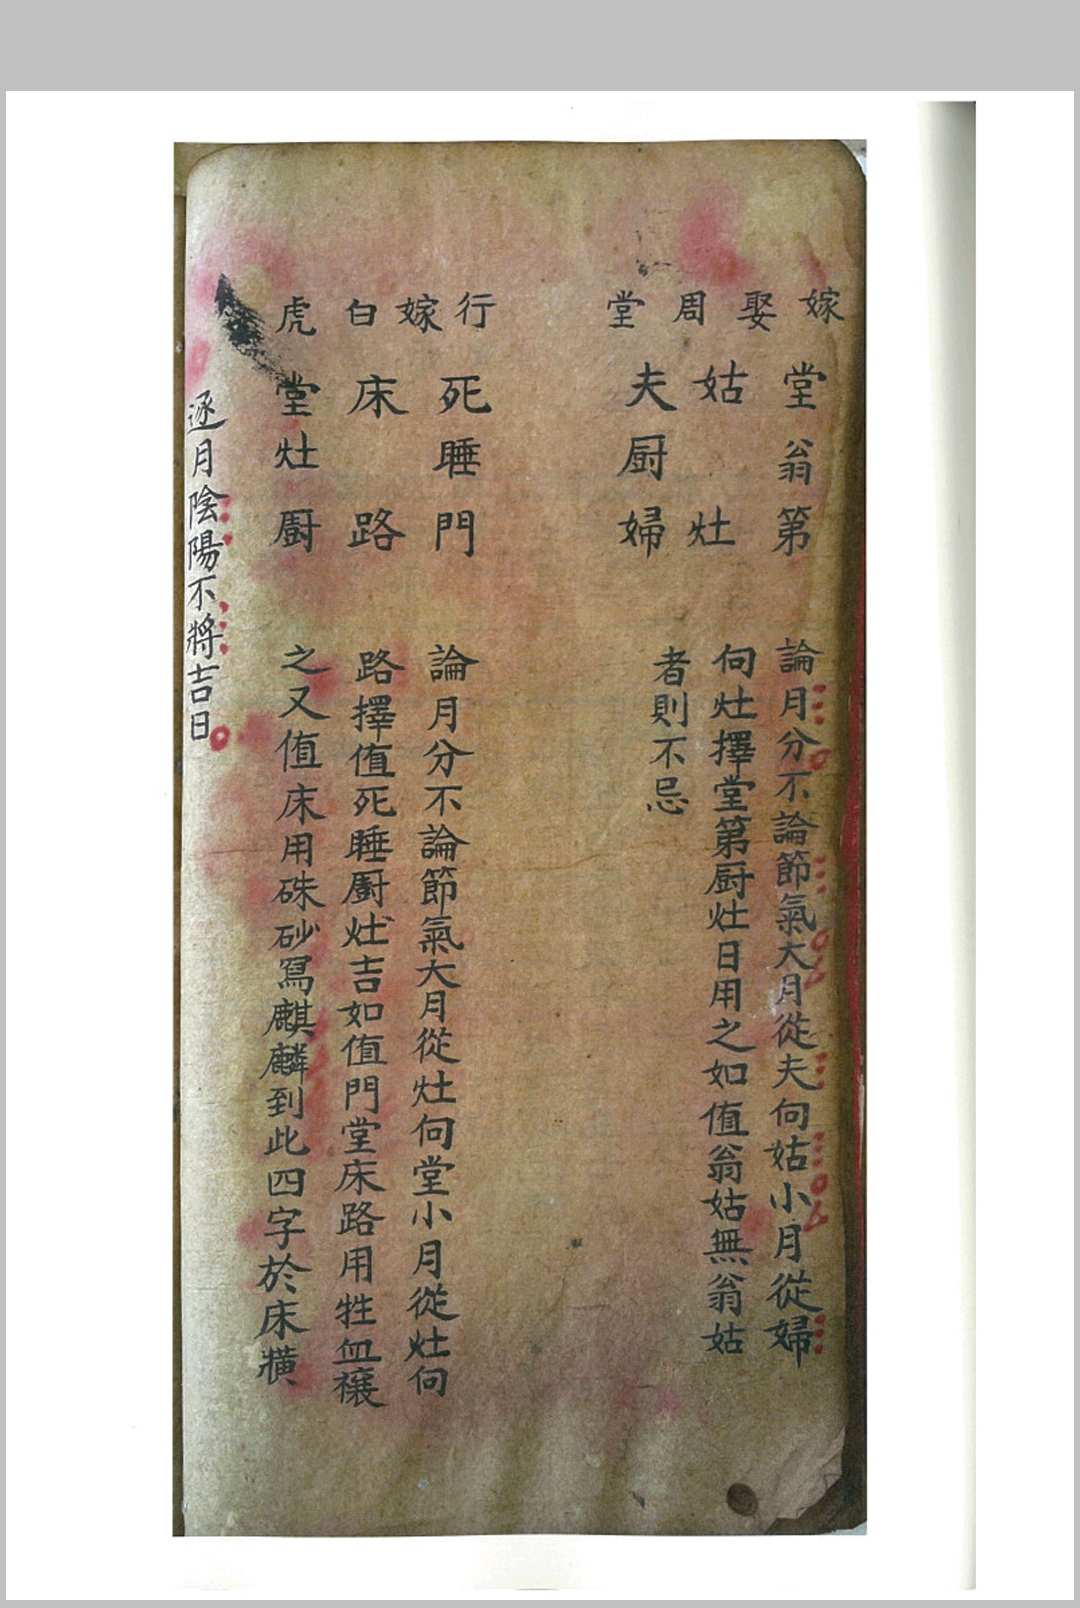 嫁娶周堂
堂翁第
姑灶
夫厨婦
論月分不論節氣大月從夫向姑小月從婦
向灶擇堂第厨灶日用之如值翁姑無翁姑
者則不忌
行嫁白虎
死睡門
床路
堂灶厨
論月分不論節氣大月從灶向堂小月從灶向
路擇值死睡厨灶吉如值門堂床路用牲血禳
之又值床用硃砂冩麒麟到此四字於床橫
逐月陰陽不將吉日